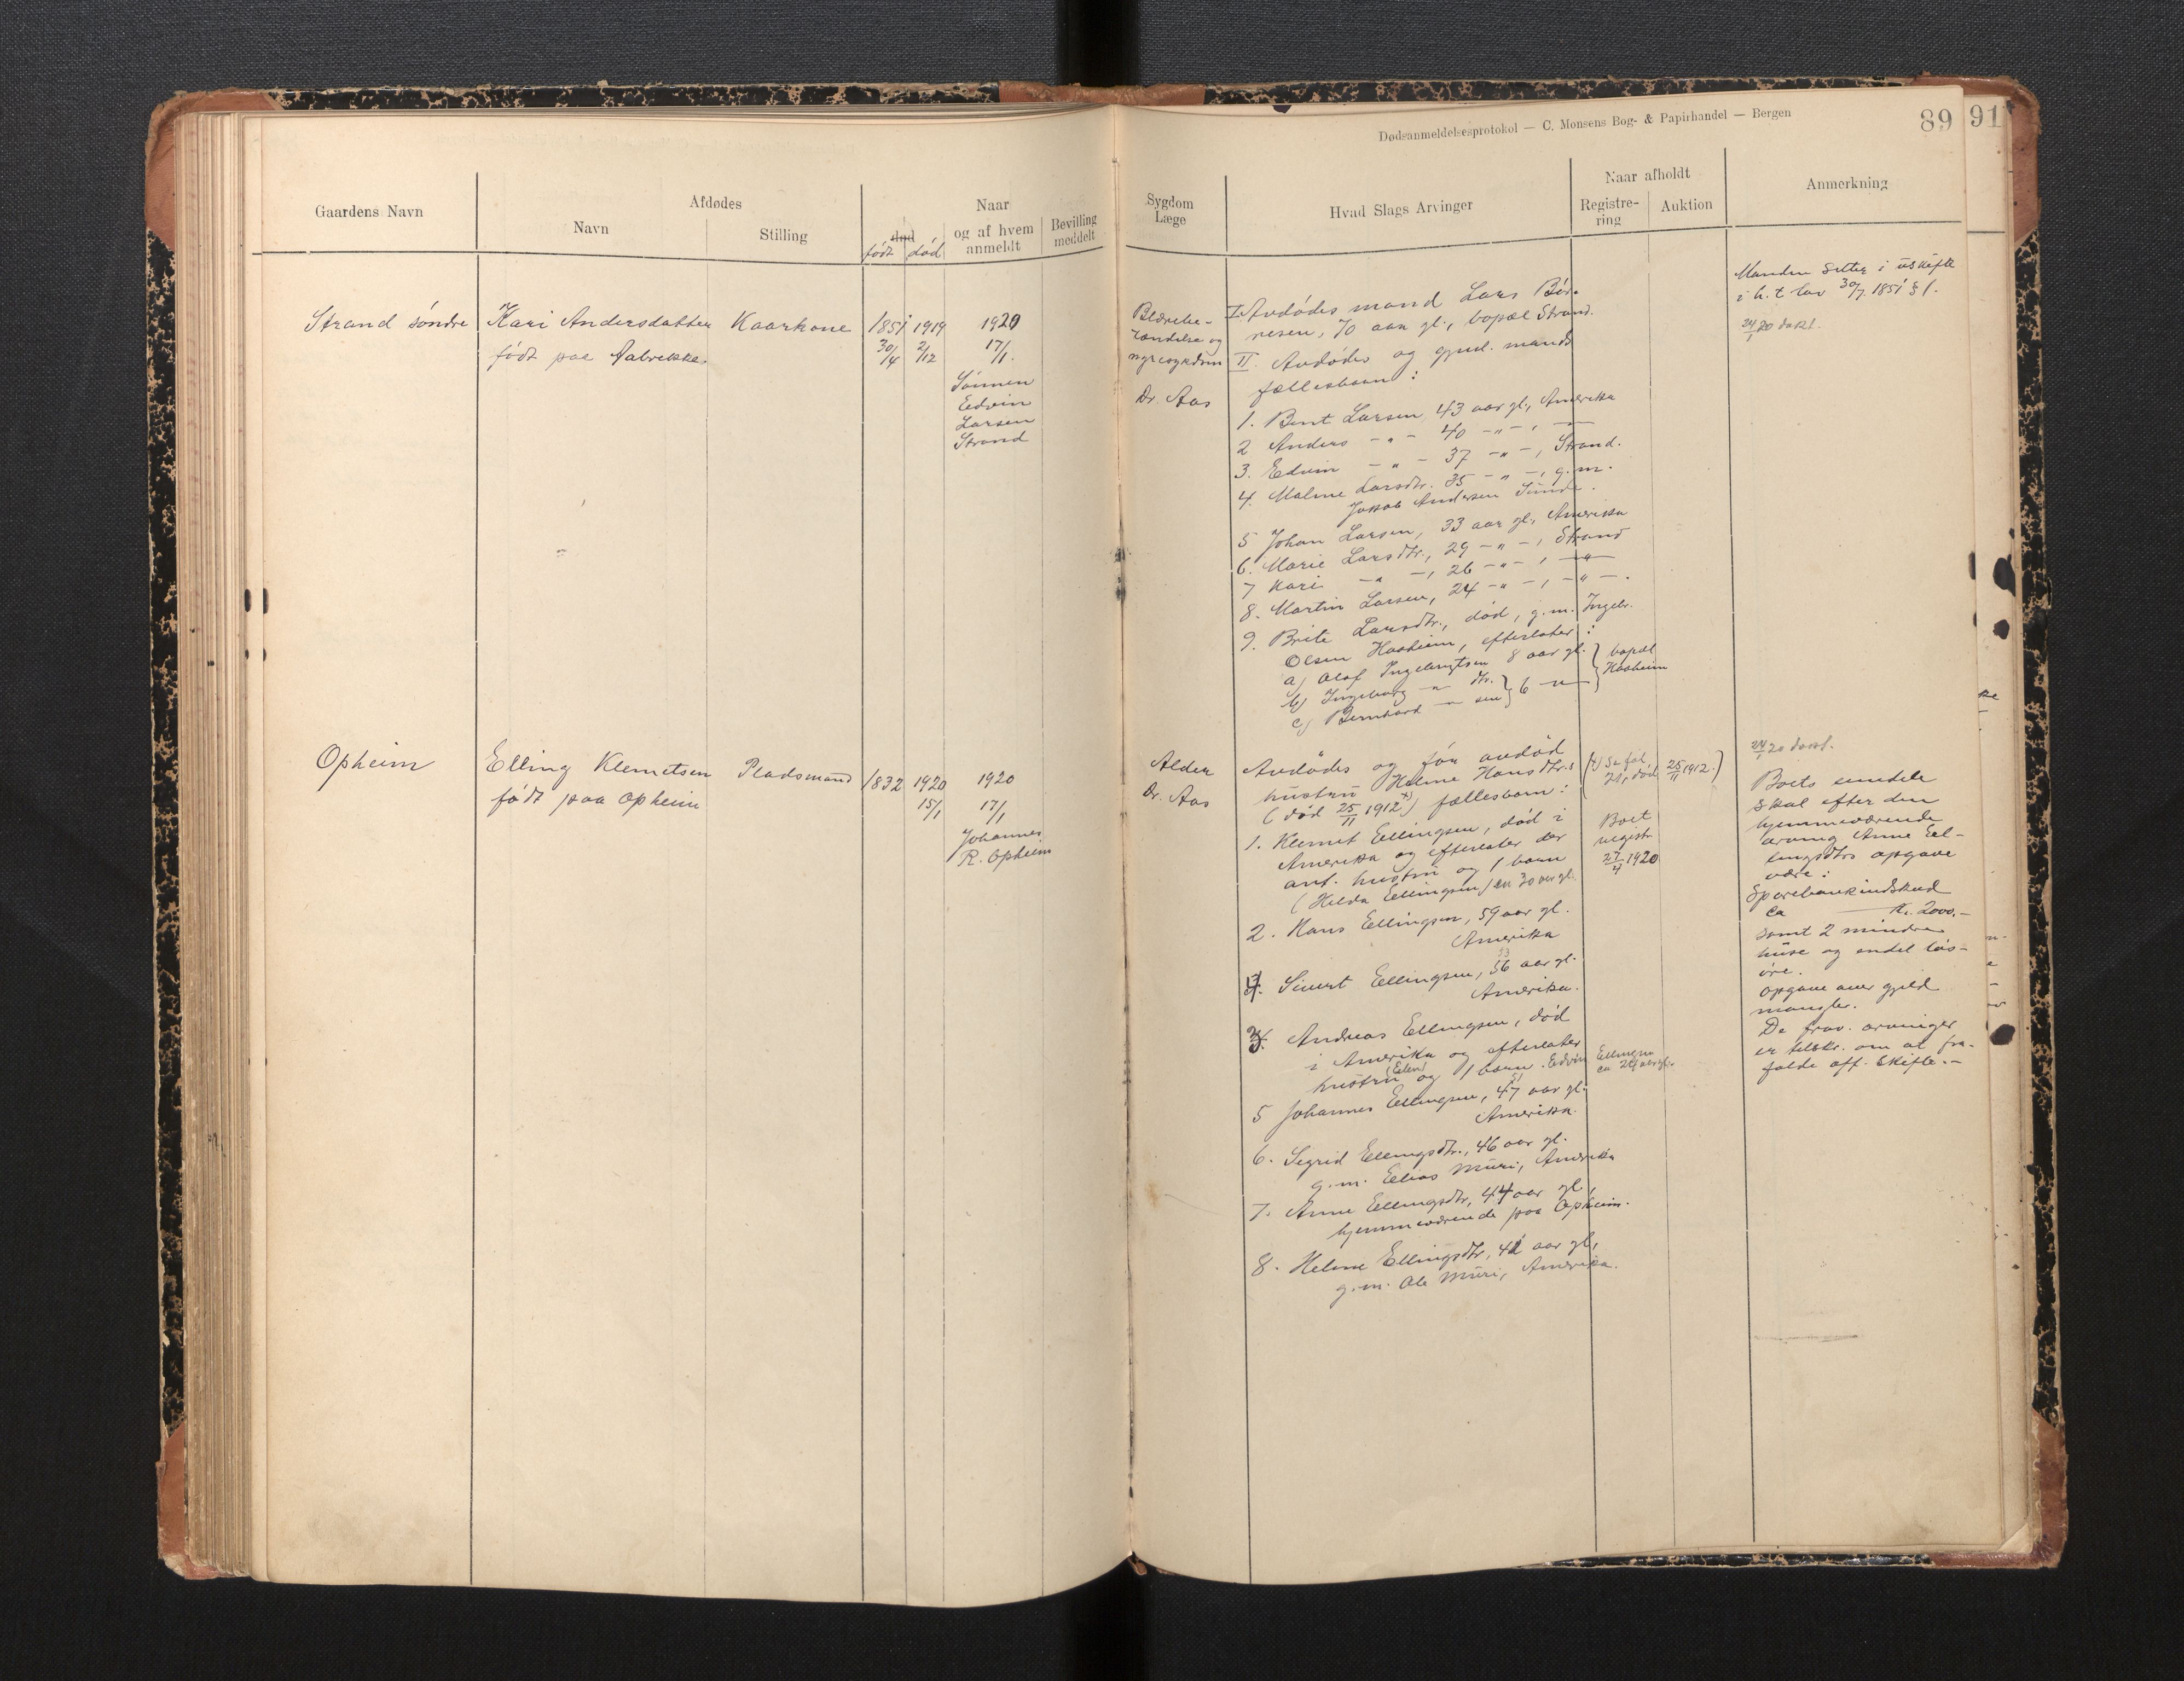 Dødsanmeldelsesprotokol — C. Monsens Bog- & Papirhandel — Bergen
89
91
Gaardens Navn
Afdødes
Navn
Stilling
død
født død
Naar
og af hvem
anmeldt
Bevilling
meddelt
Sygdom
Læge
Hvad Slags Arvinger
Naar afholdt
Registre-
ring
Auktion
Anmerkning
Strand søndre
Kari Andersdatter
født paa
Kaarkone
1851
30/4
1919
2/12
1920
17/1.
Sønnen
Edvin
Larsen
Strand
Blære
og
nyresygdom
Dr. Aas
I Avdødes mand Lars Bør-
resen, 70 aar gl., bopæl Strand.
II. Avdødes og gjenl. mands
fællesbarn:
1. Bent Larsen 43 aar gl., Amerika
2 Anders - " - 40 - " - , —
3. Edvin - " - 37 - " -, Strand.
4. Malene Larsdtr. 35 - " -, g.m.
Jakob Andersen Sunde.
5 Johan Larsen, 33 aar gl., Amerika
6. Marie Larsdtr., 29 - " -, Strand
7 Kari - " -, 26 - " - , — " —
8. Martin Larsen, 24 - " -, - " - .
9. Brite Larsdtr., død, g.m. Ingebr.
Olsen Haaheim, efterlater:
a) Olaf Ingebrigtsen 8 aar gl.
b) Ingeborg — " — dtr. } 6 — " —
c) Bernhard — " — sen
} bopæl
Haaheim
Manden sitter i uskifte
i h. t. lov 30/7. 1851 § 1.
24/1 20 dokt.
Opheim
Elling Klemetsen
født paa Opheim
Pladsmand
1832
1920
15/1
1920
17/1
Johannes
R. Opheim
Alder
Dr. Aas
Avdødes og før avdød
hustru Helene Hansdtr.s
(død 25/11 1912 x) fællesbarn:
25/11 1912.)
1. Klemet Ellingsen, død i
Amerika og efterlater der
ant. hustru og 1 barn
(Hilda Ellingsen) ca 30 aar gl.
Boet
registr.
27/4 1920
2. Hans Ellingsen, 59 aar gl.
Amerika
4. Sivert Ellingsen, 56 aar gl.
53
Amerika.
3. Andreas Ellingsen, død
i Amerika og efterlater
hustru og 1 barn. Edvin Ellingsen
5 Johannes Ellingsen, 47 aar gl.
51
Amerika.
6. Sigrid Ellingsdtr., 46 aar gl.
g.m. Elias Muri, Amerika
7. Anne Ellingsdtr, 44 aar gl
hjemmeværende paa Opheim.
8. Helene Ellingsdtr, aar gl,
g.m. Ole Muri, Amerika.
24/1 20 dokt.
Boets eiendele
skal efter den
hjemmeværende
arving Anne El-
lingsdtrs opgave
være:
Sparebankindskud
ca — Kr. 2000.-
samt 2 mindre
huse og endel løs-
øre.
Opgave over gjæld
mangler.
De frav. arvinger
er tilskr. om at fra-
falde off. skifte.-